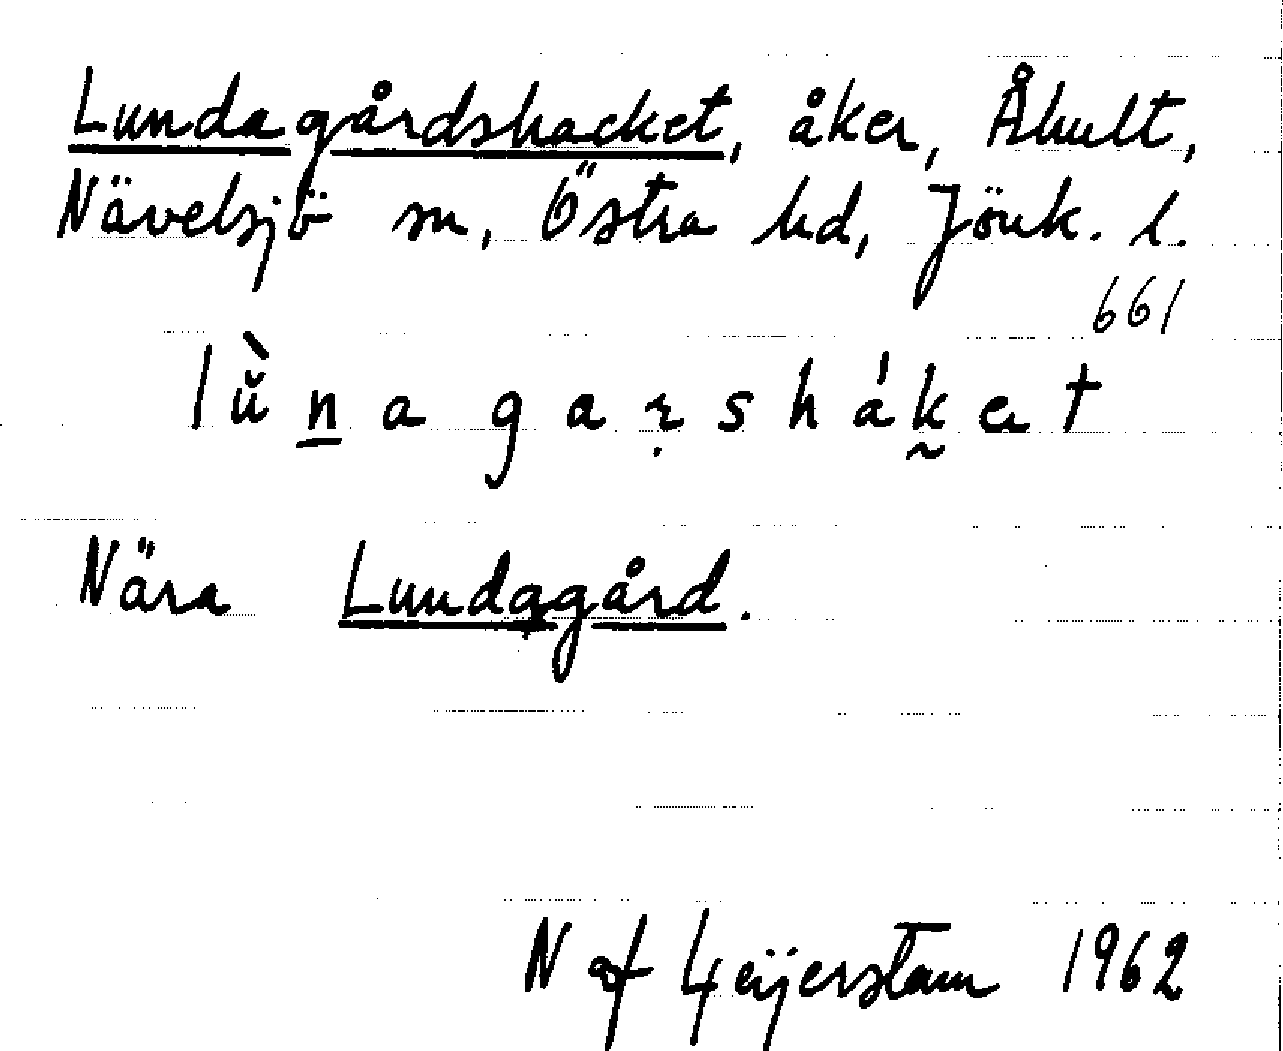 Lundagårdshacket, åker, Åhult,
Nävelsjö sn, Östra hd, Jönk. l.
661
lŭ̀n̲agaṛshák̰et
Nära Lundagård.
N af Geijerstam 1962